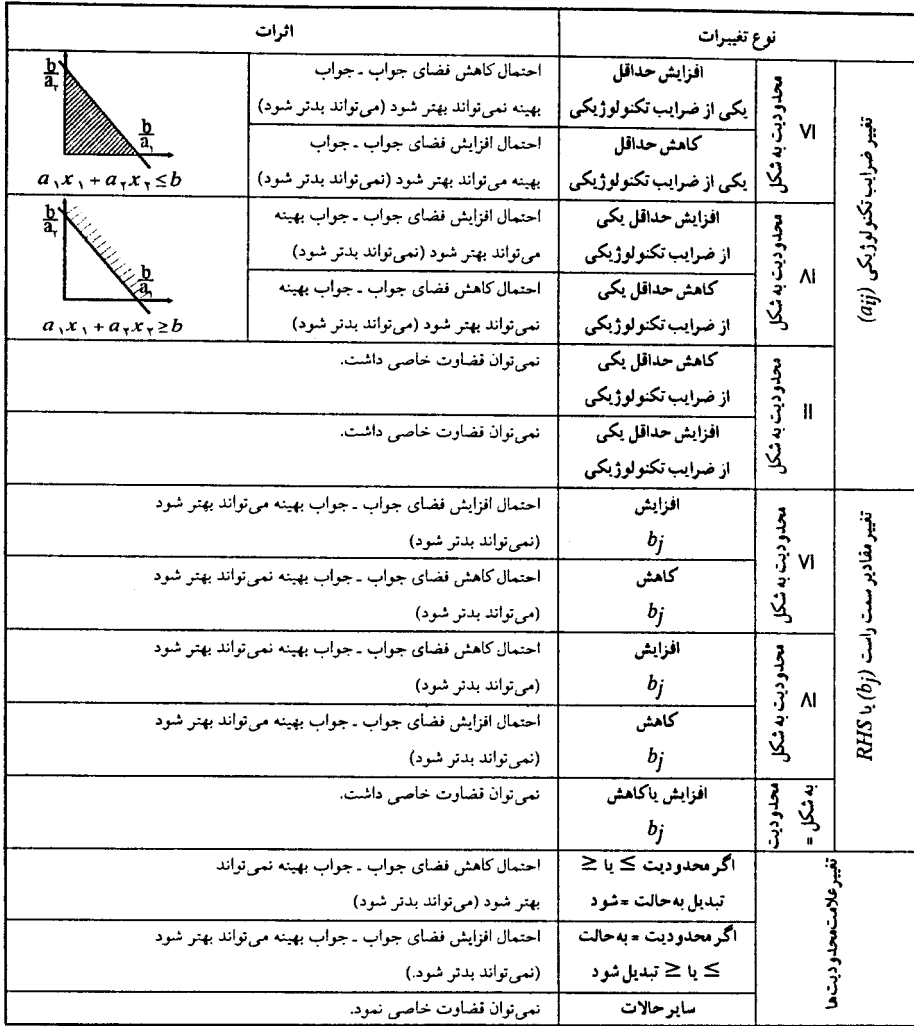 نوع تغییرات
اثرات
تغییر ضرایب تکنولوژیکی (aij)
محدودیت به شکل
≤
افزایش حداقل
یکی از ضرایب تکنولوژیکی
احتمال کاهش فضای جواب ـ جواب
بهینه نمی‌تواند بهتر شود (می‌تواند بدتر شود)
کاهش حداقل
یکی از ضرایب تکنولوژیکی
احتمال افزایش فضای جواب ـ جواب
بهینه می‌تواند بهتر شود (نمی‌تواند بدتر شود)
b/a۲
b/a۱
a۱x۱ + a۲x۲ ≤ b
محدودیت به شکل
≥
افزایش حداقل یکی
از ضرایب تکنولوژیکی
احتمال افزایش فضای جواب ـ جواب بهینه
می‌تواند بهتر شود (نمی‌تواند بدتر شود)
کاهش حداقل یکی
از ضرایب تکنولوژیکی
احتمال کاهش فضای جواب ـ جواب بهینه
نمی‌تواند بهتر شود (می‌تواند بدتر شود)
b/a۲
b/a۱
a۱x۱ + a۲x۲ ≥ b
محدودیت به شکل
=
کاهش حداقل یکی
از ضرایب تکنولوژیکی
نمی‌توان قضاوت خاصی داشت.
افزایش حداقل یکی
از ضرایب تکنولوژیکی
نمی‌توان قضاوت خاصی داشت.
تغییر مقادیر سمت راست (bj) یا RHS
محدودیت به شکل
≤
افزایش
bj
احتمال افزایش فضای جواب ـ جواب بهینه می‌تواند بهتر شود
(نمی‌تواند بدتر شود)
کاهش
bj
احتمال کاهش فضای جواب ـ جواب بهینه نمی‌تواند بهتر شود
(می‌تواند بدتر شود)
محدودیت به شکل
≥
افزایش
bj
احتمال کاهش فضای جواب ـ جواب بهینه نمی‌تواند بهتر شود
(می‌تواند بدتر شود)
کاهش
bj
احتمال افزایش فضای جواب ـ جواب بهینه می‌تواند بهتر شود
(نمی‌تواند بدتر شود)
محدودیت
به شکل =
افزایش یا کاهش
bj
نمی‌توان قضاوت خاصی داشت.
تغییر علامت محدودیت‌ها
اگر محدودیت ≥ یا ≤
تبدیل به حالت = شود
احتمال کاهش فضای جواب ـ جواب بهینه نمی‌تواند
بهتر شود (می‌تواند بدتر شود)
اگر محدودیت = به حالت
≥ یا ≤ تبدیل شود
احتمال افزایش فضای جواب ـ جواب بهینه می‌تواند بهتر شود
(نمی‌تواند بدتر شود.)
سایر حالات
نمی‌توان قضاوت خاصی نمود.